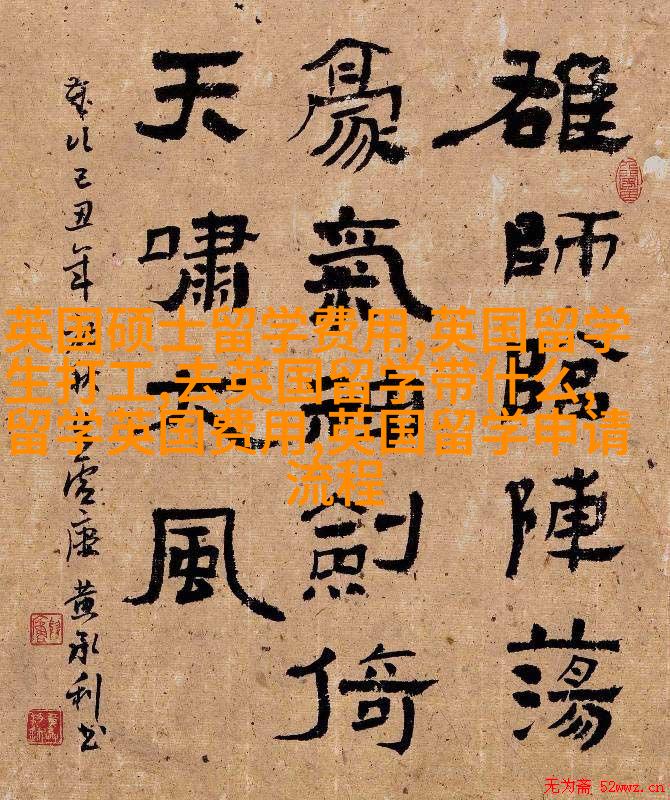 雄師臨陣蕩
豪氣劍倚
天嘯風
歲次己丑年秋 黄永利书
英国硕士留学费用,英国留学
生打工,去英国留学带什么,
留学英国费用,英国留学申请
流程
无为斋 52wwz.cn